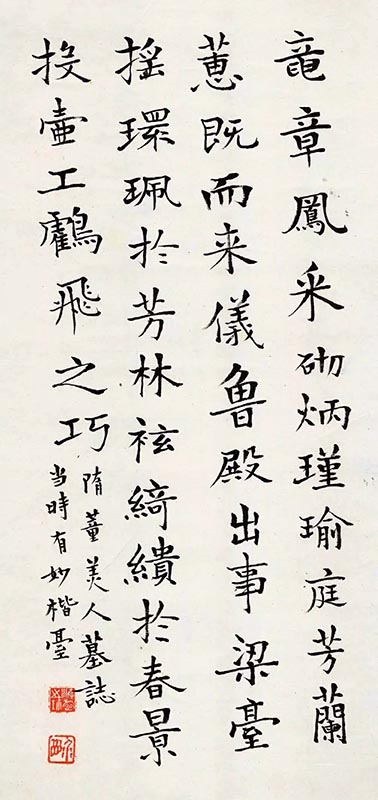 竜章鳳采砌炳瑾瑜庭芳蘭
蕙既而来儀魯殿出事梁臺
摇環珮於芳林袨綺繢於春景
投壺工鸖飛之巧
隋董美人墓誌
当時有妙楷臺